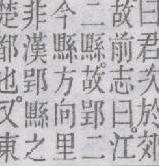 曰君次於郊
故前志曰江
二縣故郢二
今縣方向里
非漢郢縣之
楚都也又東